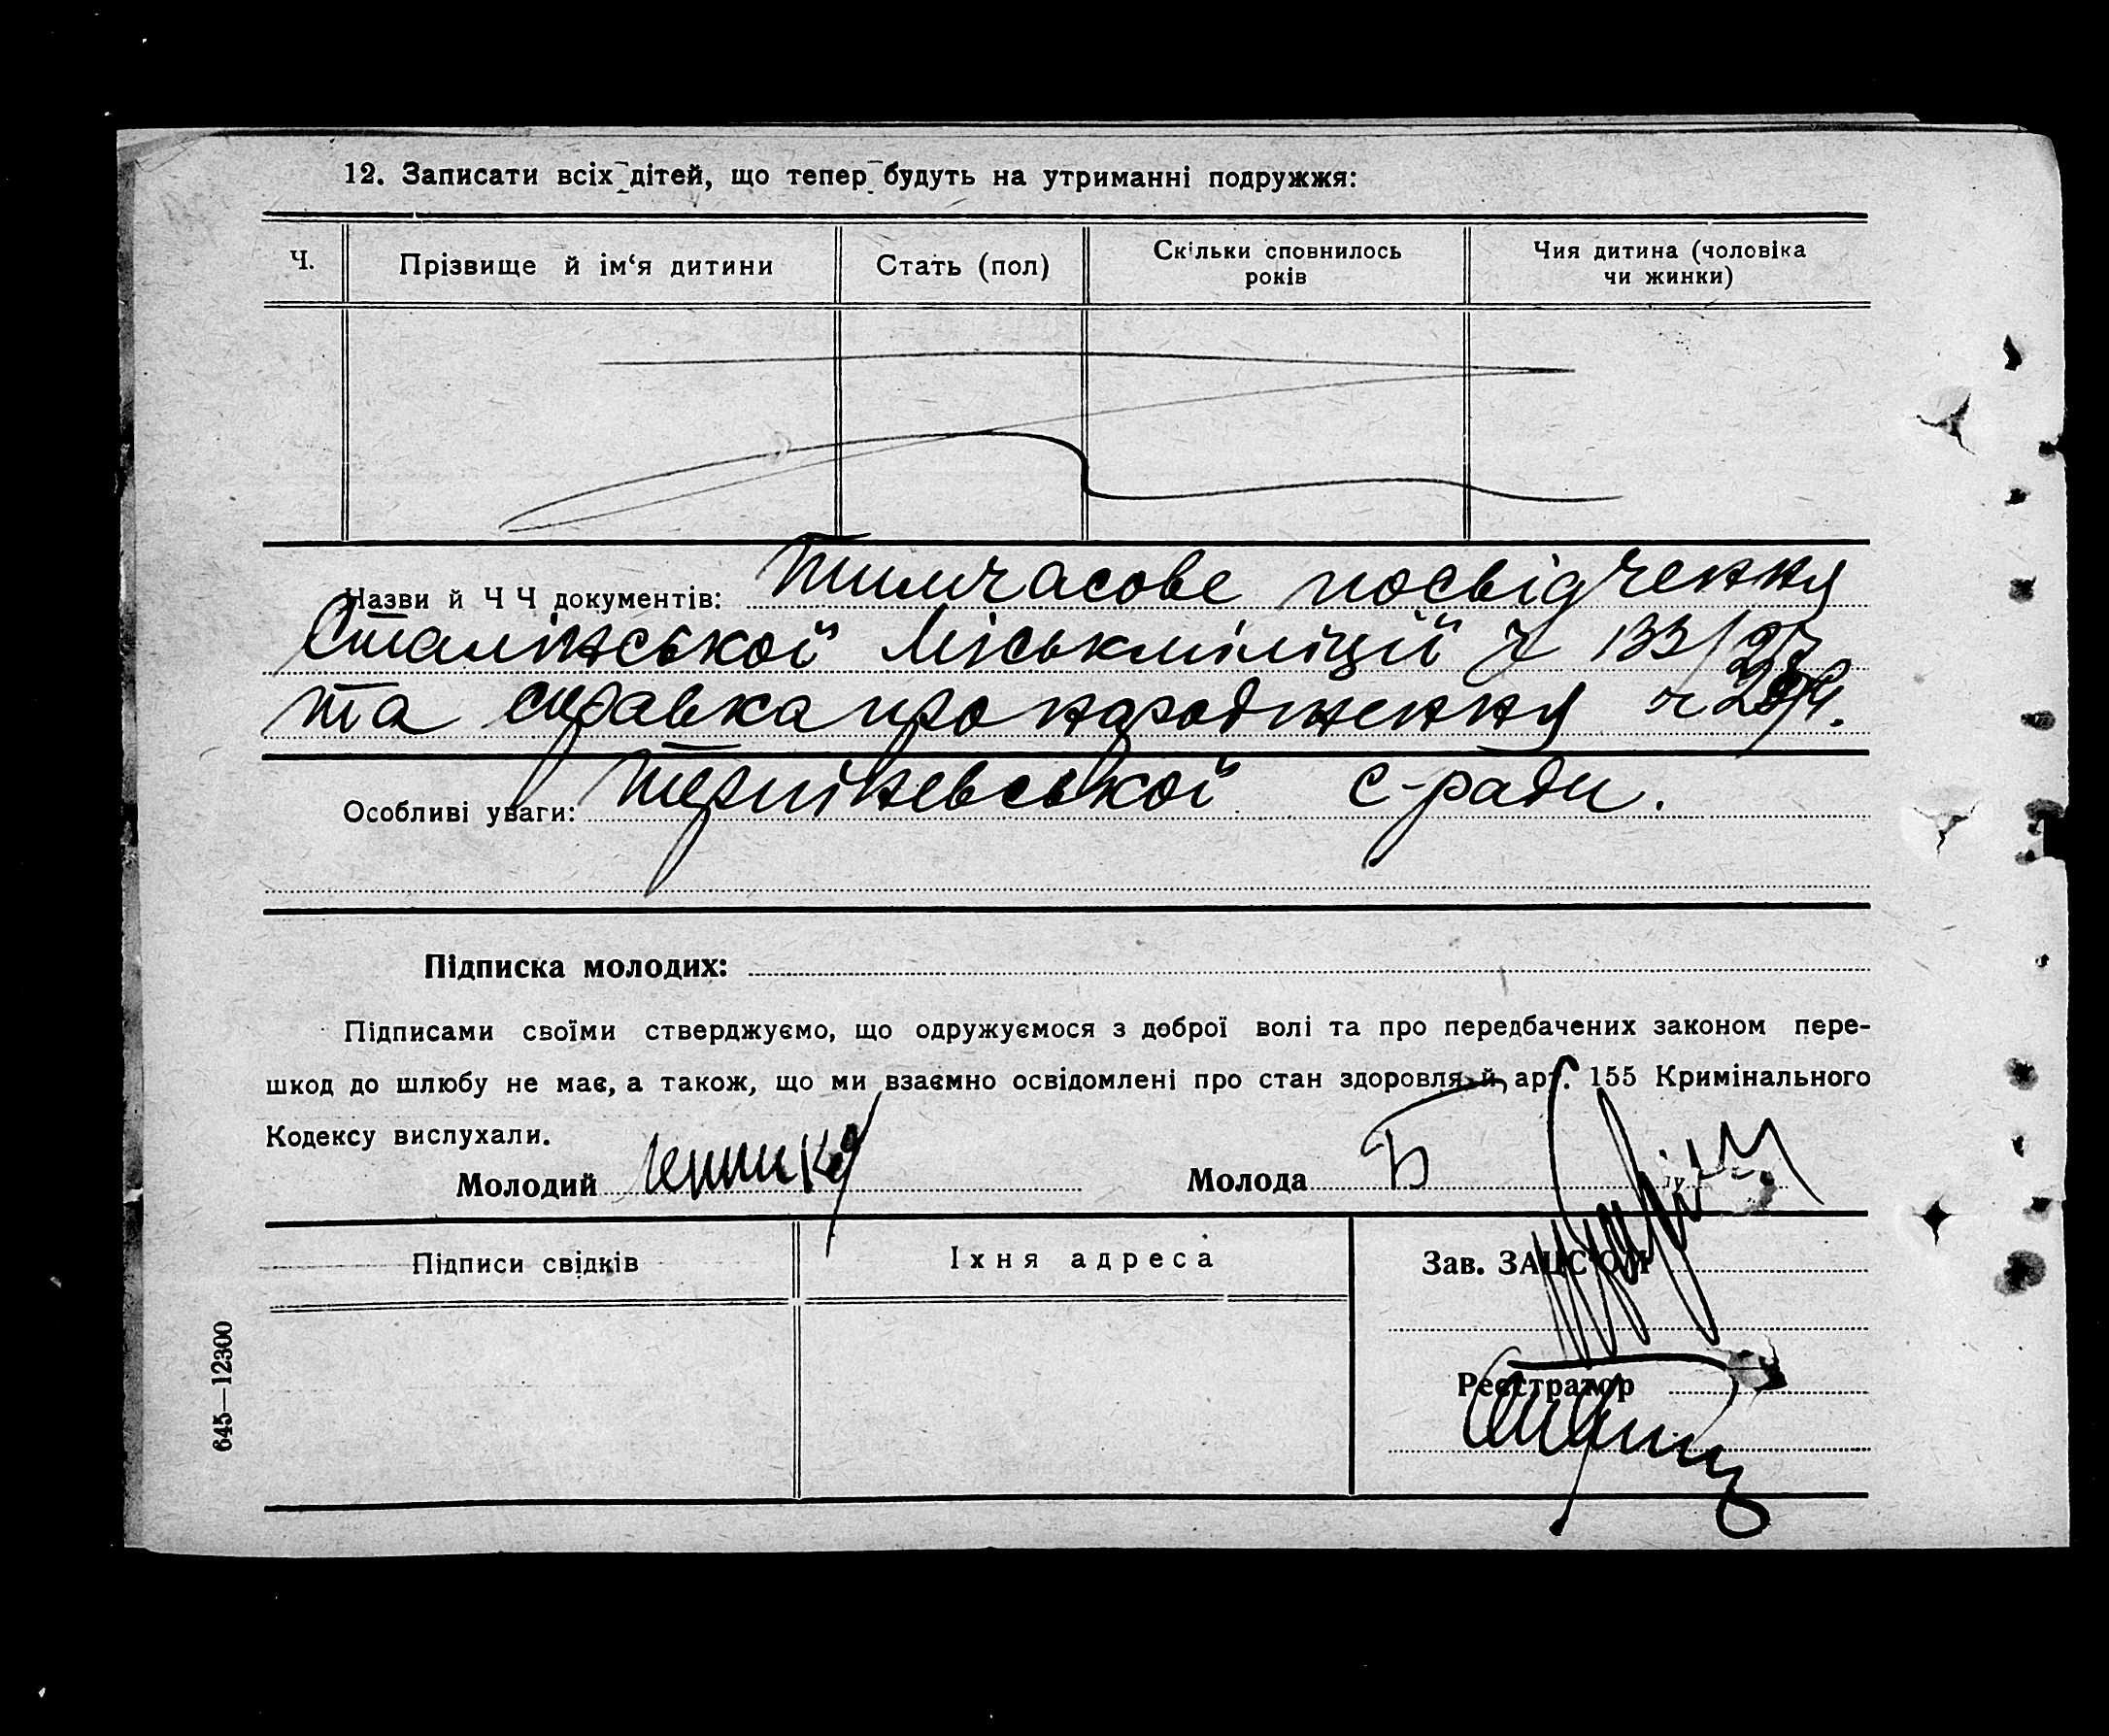 12. Записати всіх дітей, що тепер будуть на утриманні подружжя:
Ч.
Прізвище й ім‘я дитини
Стать (пол)
Скільки сповнилось
років
Чия дитина (чоловіка
чи жинки)
Назви й Ч Ч документів: Тимчасове посвідчення
Сталінської Міськміліції Ч 133/
та справка про народження ч
Особливі уваги: с-ради.
Підписка молодих:
Підписами своїми стверджуємо, що одружуємося з доброї волі та про передбачених законом пере-
шкод до шлюбу не має, а також, що ми взаємно освідомлені про стан здоровля й арт. 155 Кримінального
Кодексу вислухали.
Молодий
Молода
Підписи свідків
Їхня адреса
Зав. ЗАЦС'ОМ
Реєстратор
645—12300